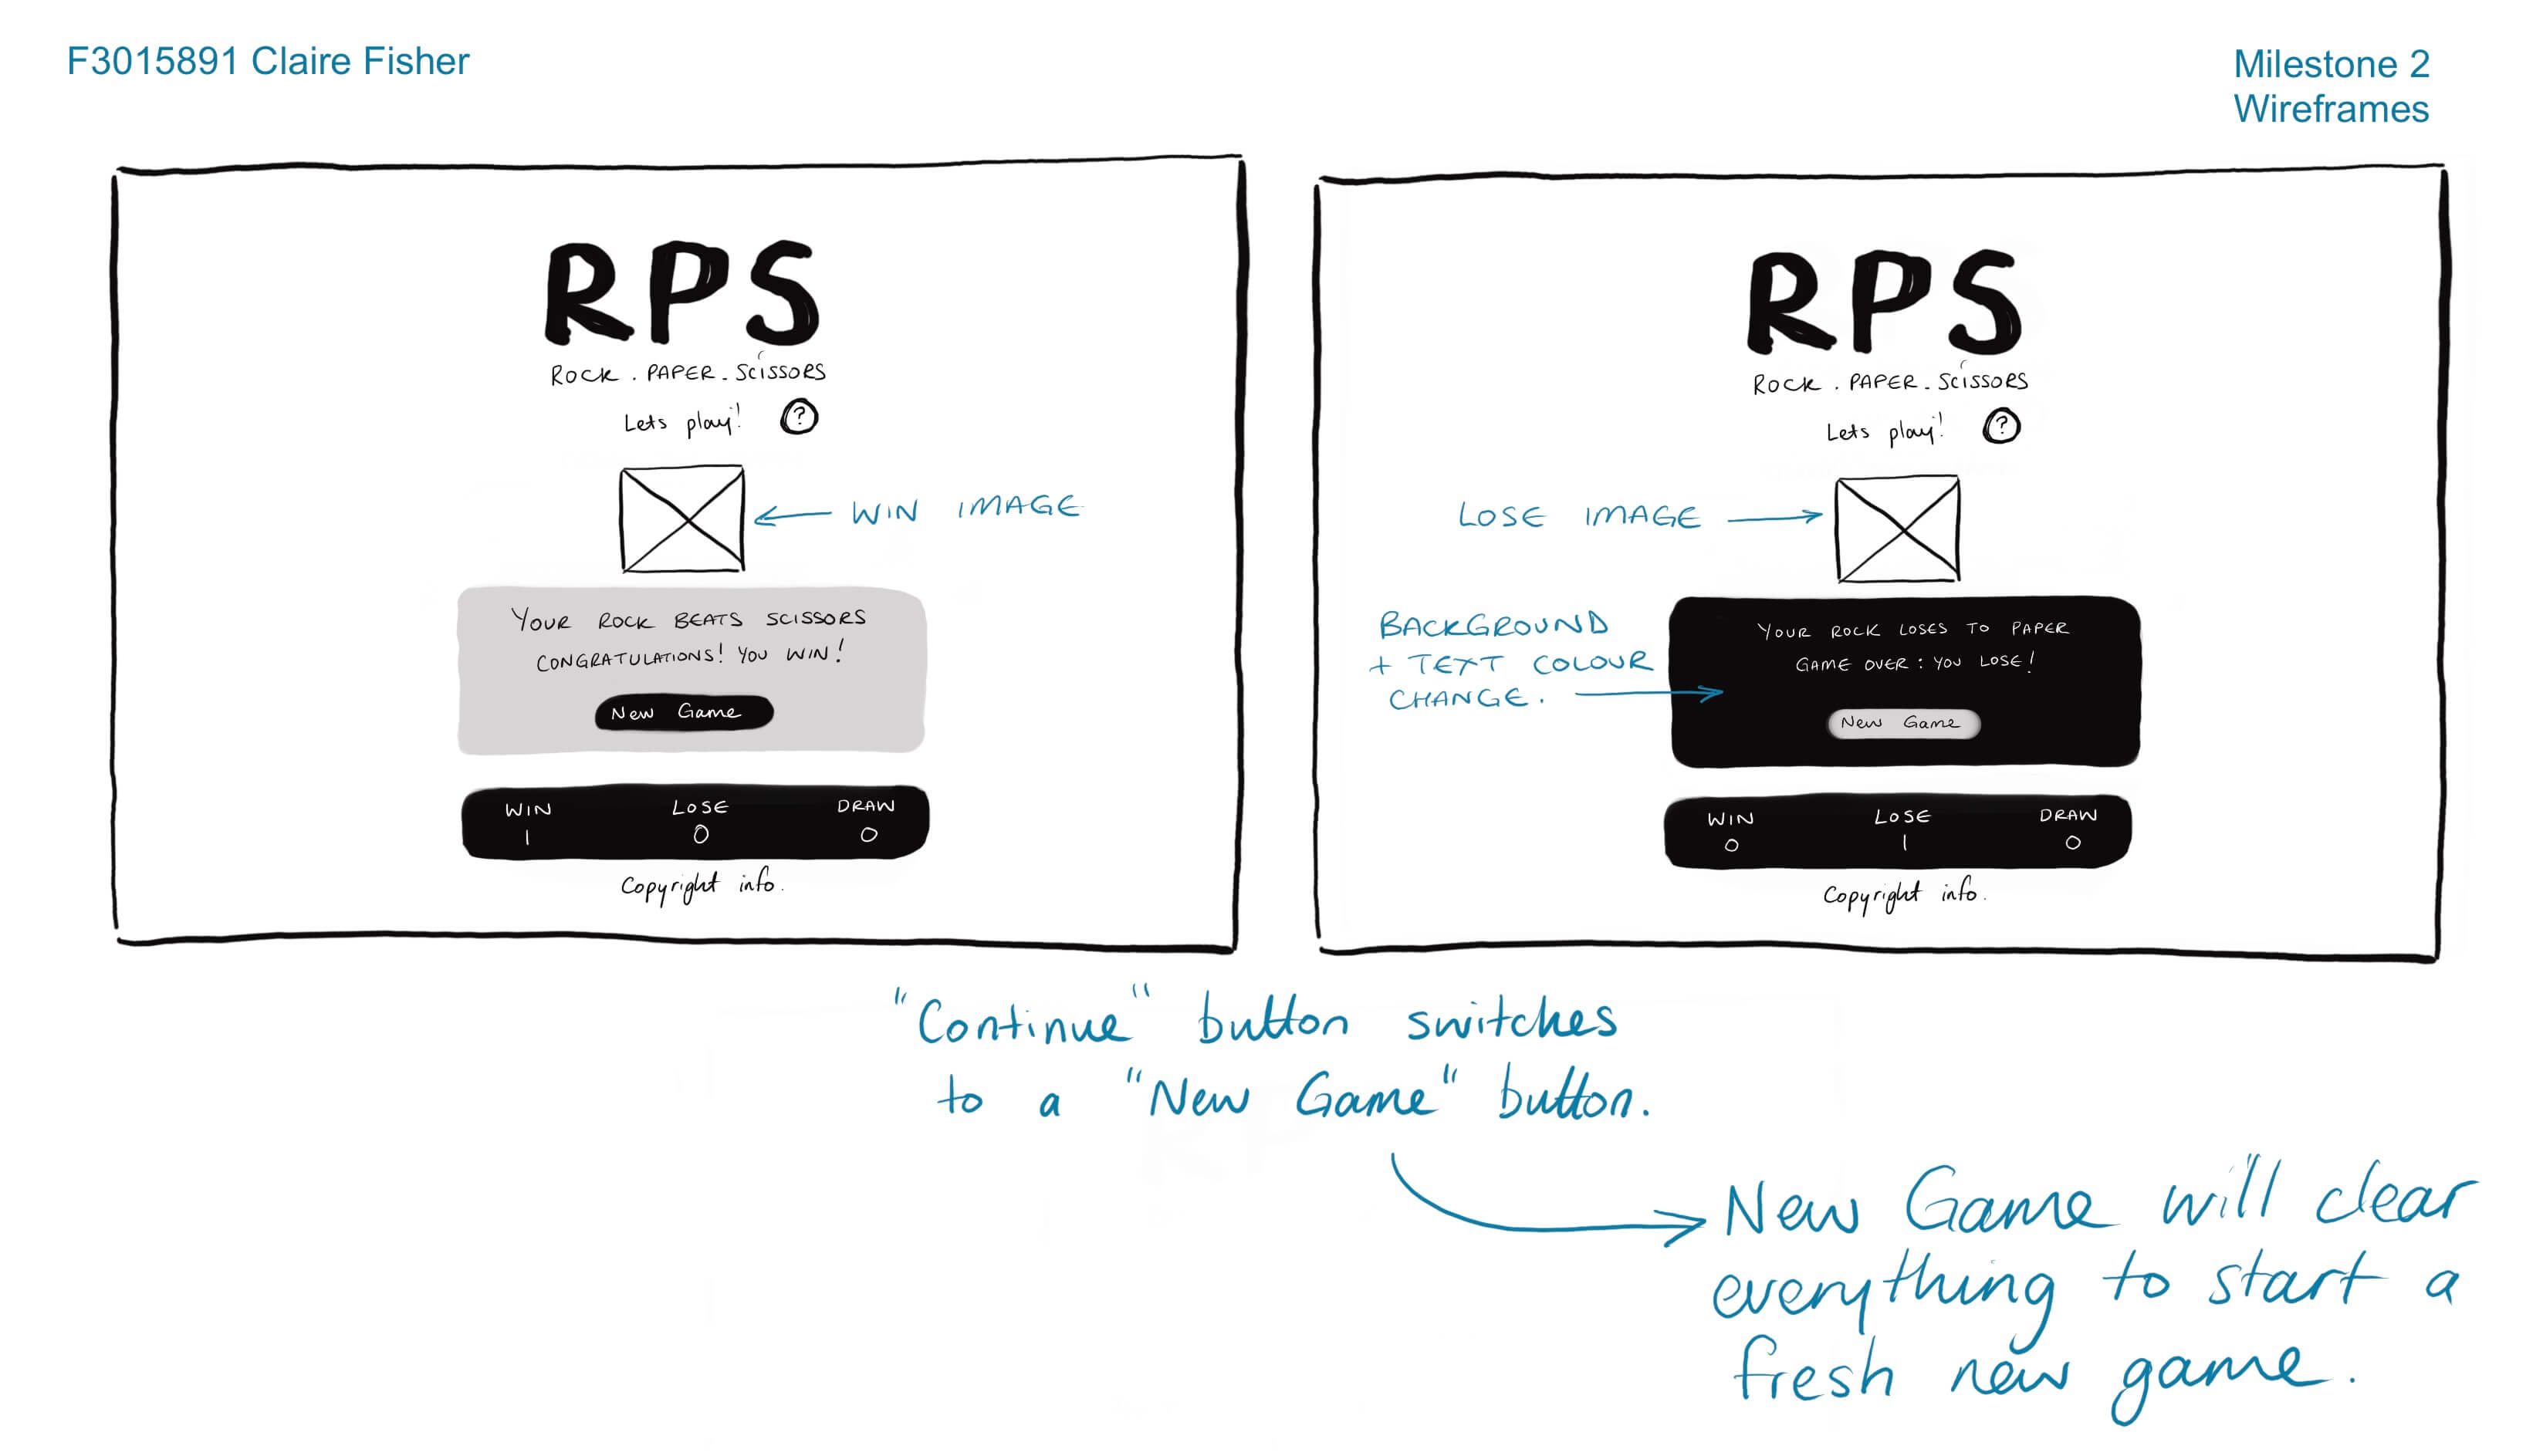 F3015891 Claire Fisher
Milestone 2
Wireframes
RPS
ROCK . PAPER . SCISSORS
Lets play! ?
WIN IMAGE
YOUR ROCK BEATS SCISSORS
CONGRATULATIONS! YOU WIN!
New Game
WIN LOSE DRAW
1 0 0
Copyright info.
RPS
ROCK . PAPER . SCISSORS
Lets play! ?
LOSE IMAGE
BACKGROUND
+ TEXT COLOUR
CHANGE.
YOUR ROCK LOSES TO PAPER
GAME OVER : YOU LOSE!
New Game
WIN LOSE DRAW
0 1 0
Copyright info.
"Continue" button switches
to a "New Game" button.
New Game will clear
everything to start a
fresh new game.